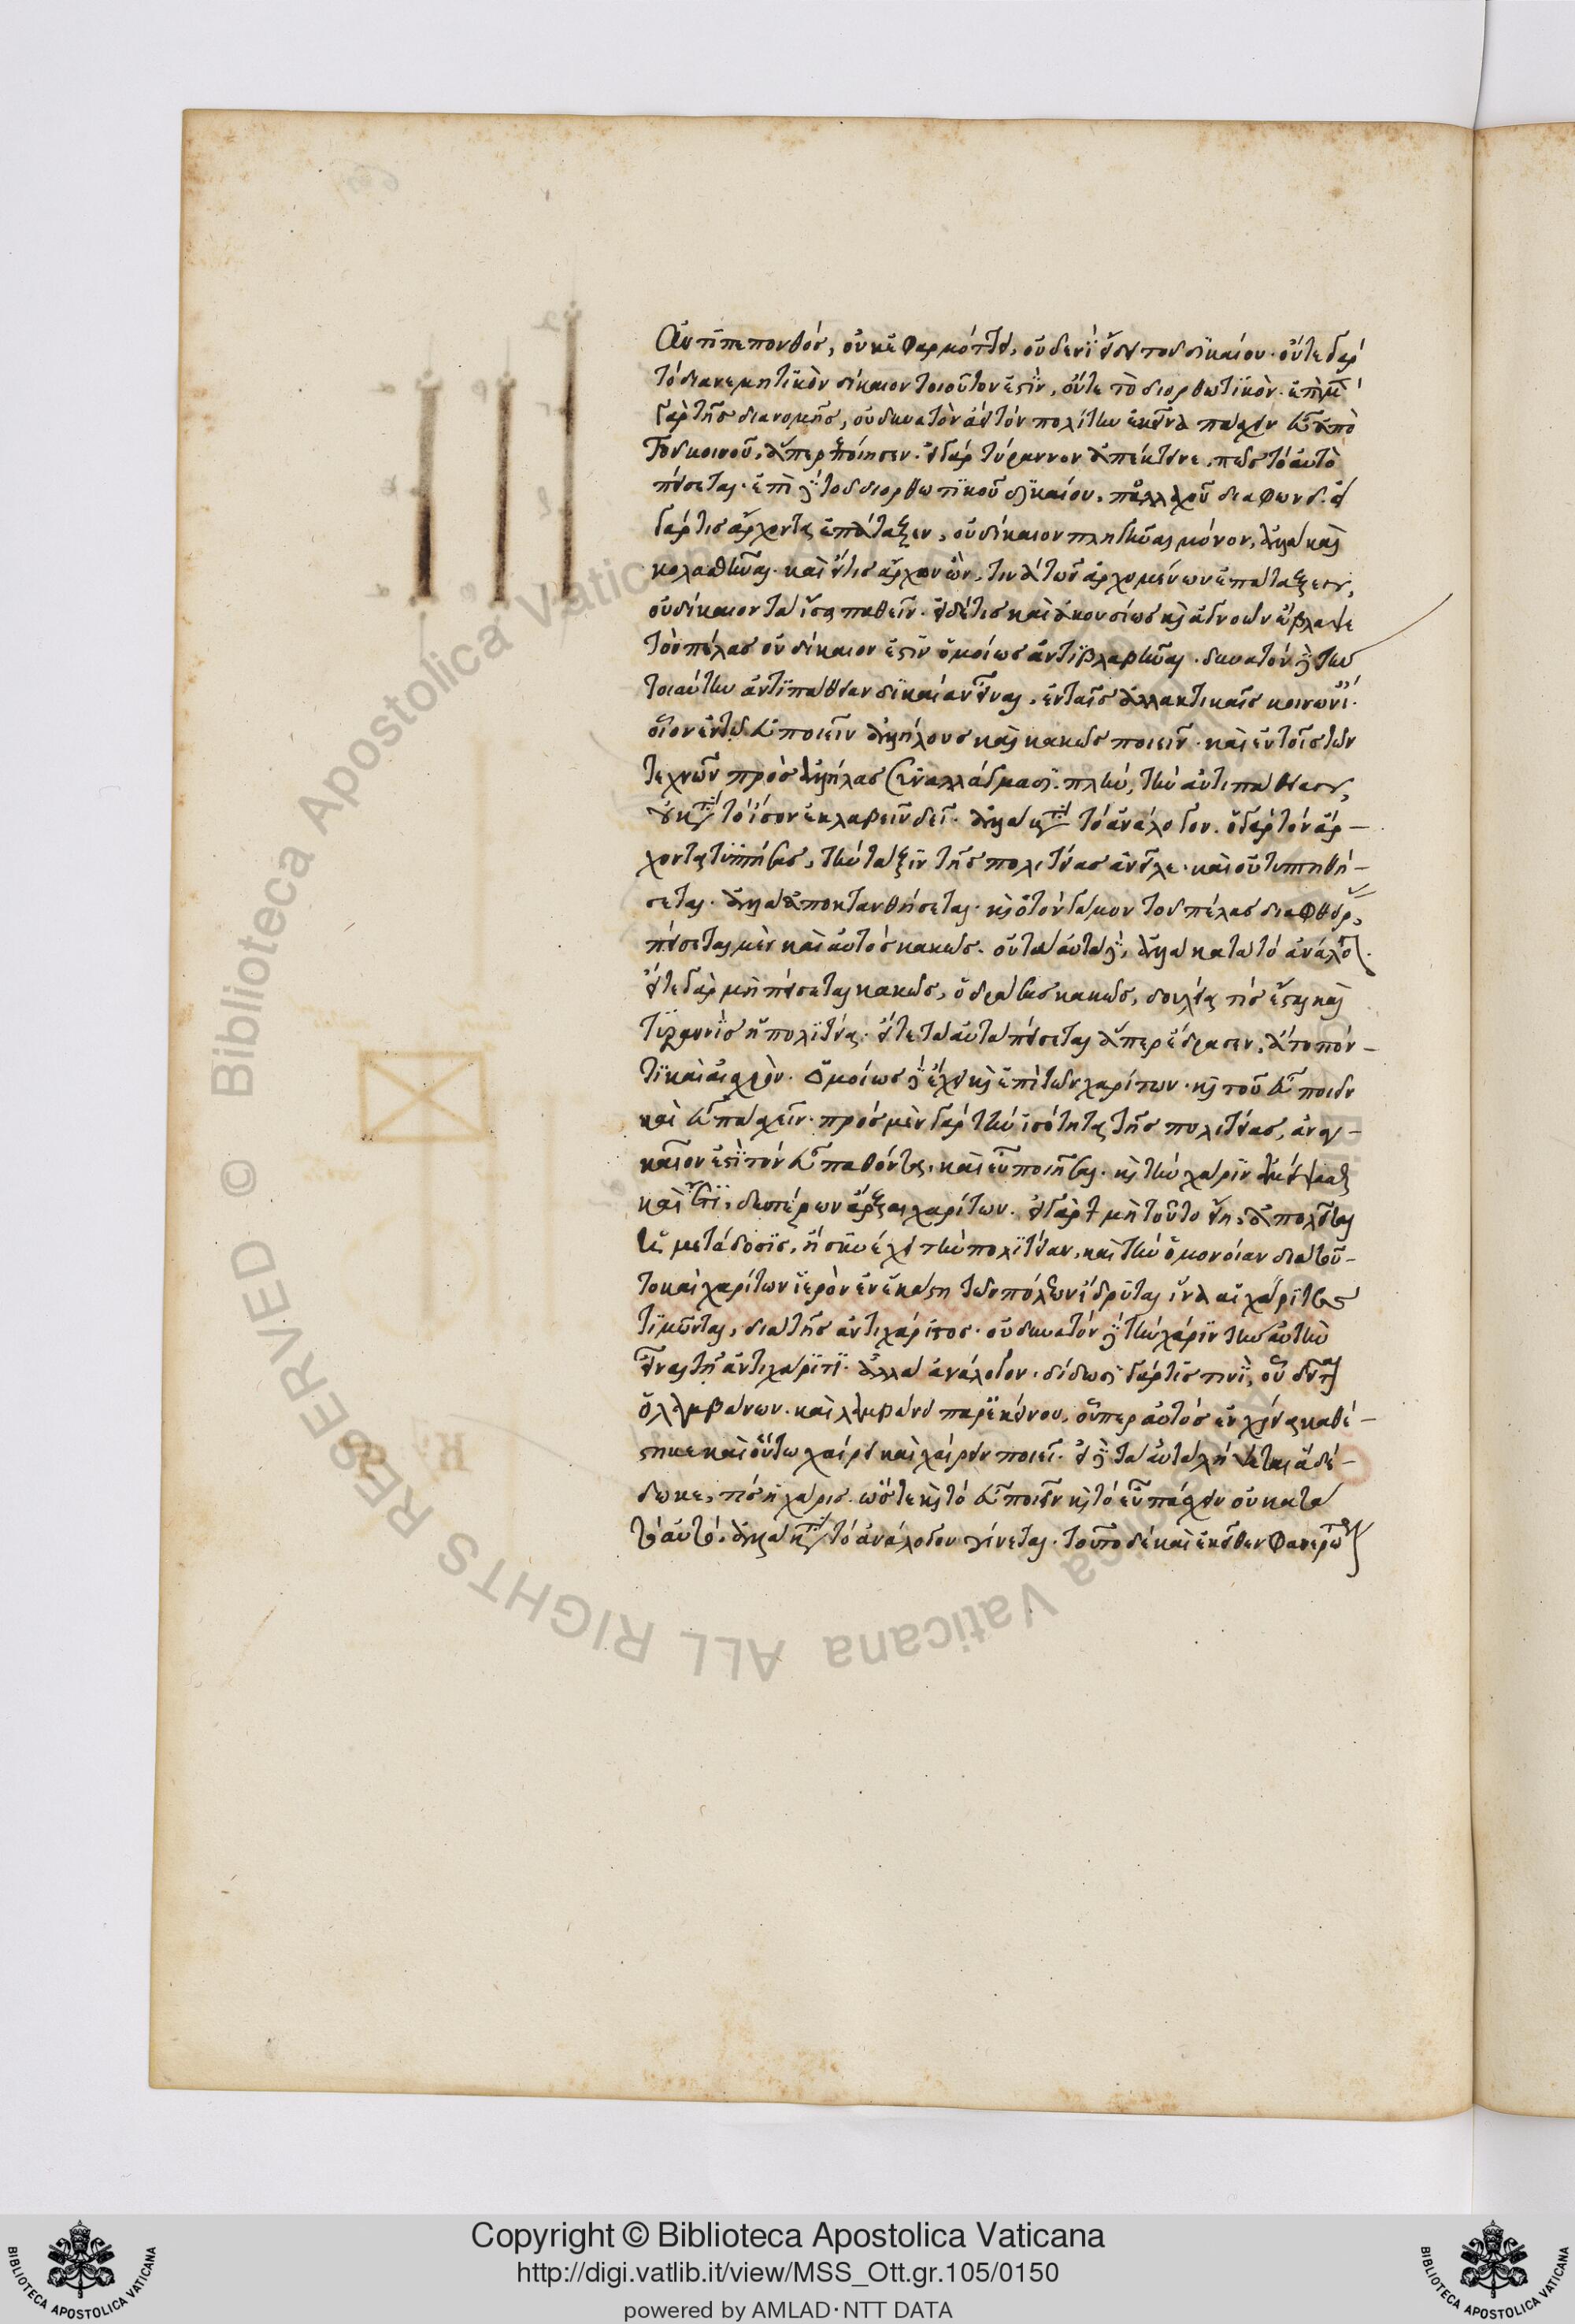 ἀντιπεπονθὸς, οὐκ ἐφαρμόττει, οὐδενὶ εἴδει τοῦ δικαίου. οὔτε γὰρ
τὸ διανεμητικὸν δίκαιον τοιοῦτον ἐστὶν, οὔτε τὸ διορθωτικὸν. ἐπὶ μὲν
γὰρ τῆς διανομῆς, οὐ δυνατὸν ἀεὶ τὸν πολίτην ἐκεῖνα πάσχειν ὑπὸ
τοῦ κοινοῦ, ἅπερ ἐποίησεν. εἰ γὰρ τύραννον ἀπέκτεινε, πῶς τὸ αὐτὸ
πείσεται. ἐπὶ δὲ τοῦ διορθωτικοῦ δικαίου, πολλαχοῦ διαφωνεῖ. εἰ
γάρ τις ἄρχοντα ἐπάταξεν, οὐ δίκαιον πληγῆναι μόνον, ἀλλὰ καὶ
κολασθῆναι. καὶ εἴ τις ἄρχων ὢν, τινὰ τῶν ἀρχομένων ἐπάταξεν,
οὐ δίκαιον τὰ ἴσα παθεῖν. εἰ δέ τις καὶ ἀκουσίως καὶ ἀγνοῶν ἔβλαψε
τὸν πέλας οὐ δίκαιον ἐστὶν ὁμοίως ἀντιβλαβῆναι. δυνατὸν δὲ τὴν
τοιαύτην ἀντιπάθειαν δικαίαν εἶναι, ἐν ταῖς ἀλλακτικαῖς κοινωνί.
οἷον ἐν τῷ εὖ ποιεῖν ἀλλήλους καὶ κακῶς ποιεῖν. καὶ ἐν τοῖς τῶν
τεχνῶν πρὸς ἀλλήλας συναλλάγμασι. πλὴν, τὴν ἀντιπάθειαν,
οὐ κατὰ τὸ ἴσον ἐκλαβεῖν δεῖ. ἀλλὰ κατὰ τὸ ἀνάλογον. ὁ γὰρ τὸν ἄρ-
χοντα τυπτήσας, τὴν τάξιν τῆς πολιτείας ἀνεῖλε. καὶ οὐ τυπτηθή-
σεται. ἀλλὰ ἀποκτανθήσεται. καὶ ὁ τὸν γάμον τοῦ πέλας διαφθείρ,
πείσεται μὲν καὶ αὐτὸς κακῶς. οὐ τὰ αὐτὰ δὲ, ἀλλὰ κατὰ τὸ ἀνάλογ.
εἴτε γὰρ μὴ πείσεται κακῶς, ὁ δράσας κακῶς, δουλεία τίς ἔσται καὶ
τυραννὶς ἡ πολιτεία. εἴτε τὰ αὐτὰ πείσεται ἅπερ ἔδρασεν, ἄτοπόν-
τι καὶ αἰσχρὸν. ὁμοίως δὲ ἔχει καὶ ἐπὶ τῶν χαρίτων. καὶ τοῦ εὖ ποιεῖν
καὶ εὖ πάσχειν. πρὸς μὲν γὰρ τὴν ἰσότητα τῆς πολιτείας, ἀναγ-
καῖον ἐστὶ τὸν εὖ παθόντα, καὶ εὖ ποιῆσαι. καὶ τὴν χάριν
καὶ ἔτι, δευτέρων ἄρξαι χαρίτων. εἰ γὰρ μὴ τοῦτο εἴη, ἀπολεῖται
ἡ μετάδοσις, ἣ συνέχει τὴν πολιτείαν, καὶ τὴν ὁμόνοιαν διὰ τοῦ-
το καὶ χαρίτων ἱερὸν ἐν ἑκάστῃ τῶν πόλεων ἵδρυται ἵνα αἱ χάριτες
τιμῶνται, διὰ τῆς ἀντιχάριτος. οὐ δυνατὸν δὲ τὴν χάριν τὴν αὐτὴν
εἶναι τῇ ἀντιχάριτι. ἀλλὰ ἀνάλογον. δίδωσι γάρ τις τινὶ, οὗ δεῖται
ὁ λαμβάνων. καὶ λαμβάνει παρ' ἐκείνου, οὗπερ αὐτὸς ἐν χρείᾳ καθέ-
στηκε καὶ οὕτω χαίρει καὶ χαίρειν ποιεῖ. εἰ δὲ τὰ αὐτὰ λήψεται ἃ δέ-
δωκε, τίς ἡ χάρις. ὥστε καὶ τὸ εὖ ποιεῖν καὶ τὸ εὖ πάσχειν οὐ κατὰ
τὸ αὐτό, ἀλλὰ κατὰ τὸ ἀνάλογον γίνεται. τοῦτο δὲ καὶ ἐκεῖθεν φανερὸν
© Biblioteca Apostolica Vaticana ALL RIGHTS RESERVED
Copyright © Biblioteca Apostolica Vaticana
http://digi.vatlib.it/view/MSS_Ott.gr.105/0150
powered by AMLAD·NTT DATA
BIBLIOTECA APOSTOLICA VATICANA
BIBLIOTECA APOSTOLICA VATICANA